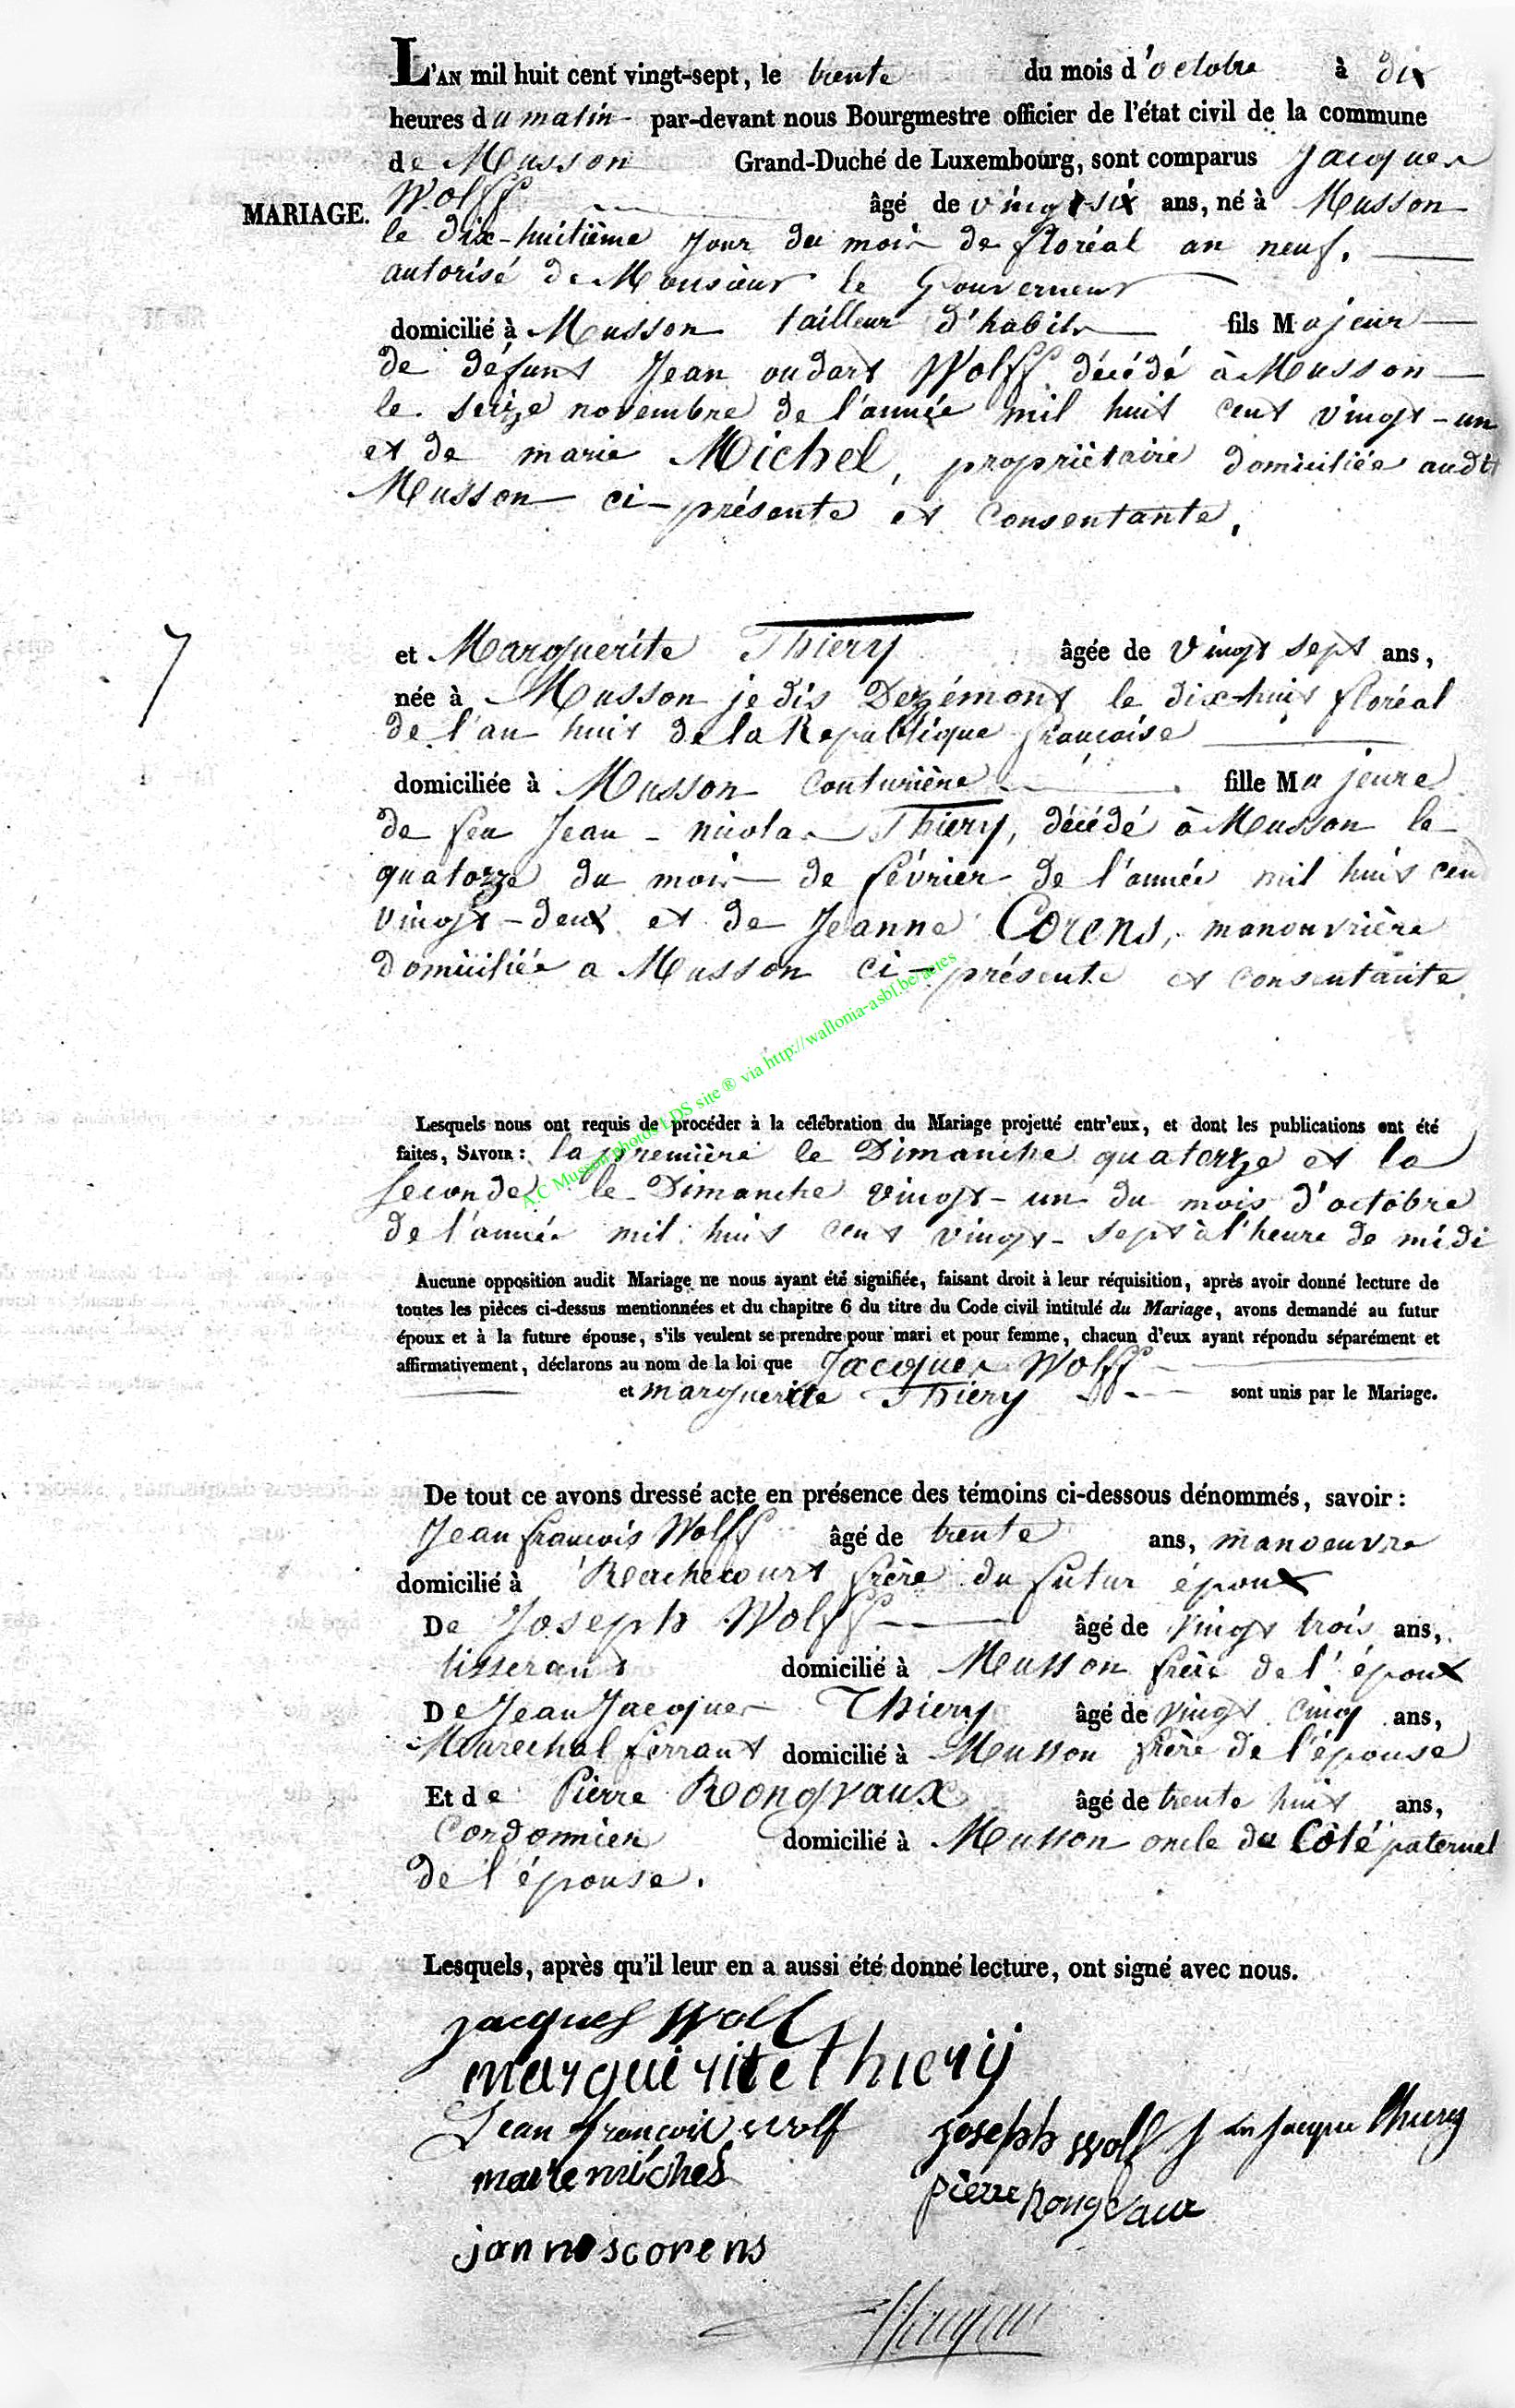 L'AN mil huit cent vingt-sept, le trente du mois d'octobre à dix
heures du matin par-devant nous Bourgmestre officier de l'état civil de la commune
de Musson Grand-Duché de Luxembourg, sont comparus Jacques
MARIAGE. Wolff âgé de vingt six ans, né à Musson
le dix-huitième jour du mois de floréal an neuf.
autorisé de Monsieur le Gouverneur
domicilié à Musson tailleur d'habits fils Majeur
de défunt Jean oudart Wolff décédé à Musson
le seize novembre de l'année mil huit cent vingt-un
et de marie Michel, propriétaire domiciliée audt
Musson ci-présente et consentante.
7
et Marguerite Thiery âgée de vingt sept ans,
née à Musson je dis Dezémont le dix-huit floréal
de l'an huit de la Republique françoise
domiciliée à Musson Couturière fille Majeure
de feu Jean-nicolas Thiery, décédé à Musson le
quatorze du mois de février de l'année mil huit cent
vingt-deux et de Jeanne Corens, manouvrière
domiciliée a Musson ci-présente et consentante
Lesquels nous ont requis de procéder à la célébration du Mariage projetté entr'eux, et dont les publications ont été
faites, SAVOIR: la première le Dimanche quatorze et la
seconde le Dimanche vingt-un du mois d'octobre
de l'année mil huit cent vingt-sept à l'heure de midi
A.C Musson photos LDS site ® via http://wallonia-asbl.be/actes
Aucune opposition audit Mariage ne nous ayant été signifiée, faisant droit à leur réquisition, après avoir donné lecture de
toutes les pièces ci-dessus mentionnées et du chapitre 6 du titre du Code civil intitulé du Mariage, avons demandé au futur
époux et à la future épouse, s'ils veulent se prendre pour mari et pour femme, chacun d'eux ayant répondu séparément et
affirmativement, déclarons au nom de la loi que Jacques Wolff
et marguerite Thiery sont unis par le Mariage.
De tout ce avons dressé acte en présence des témoins ci-dessous dénommés, savoir:
Jean françois Wolff âgé de trente ans, manoeuvre
domicilié à Rachecourt frère du futur époux
De Joseph Wolff âgé de vingt trois ans,
tisserant domicilié à Musson frère de l'époux
De Jean Jacques Thiery âgé de vingt cinq ans,
Marechal ferrant domicilié à Musson frère de l'épouse
Et de Pierre Rongvaux âgé de trente huit ans,
Cordonnier domicilié à Musson oncle du Côté paternel
de l'épouse.
Lesquels, après qu'il leur en a aussi été donné lecture, ont signé avec nous.
jacques Wolf
marguirite thiery
Jean françois wolf joseph wolf Jan jacque thiery
marie michel pierre Rongvaux
jannes corens